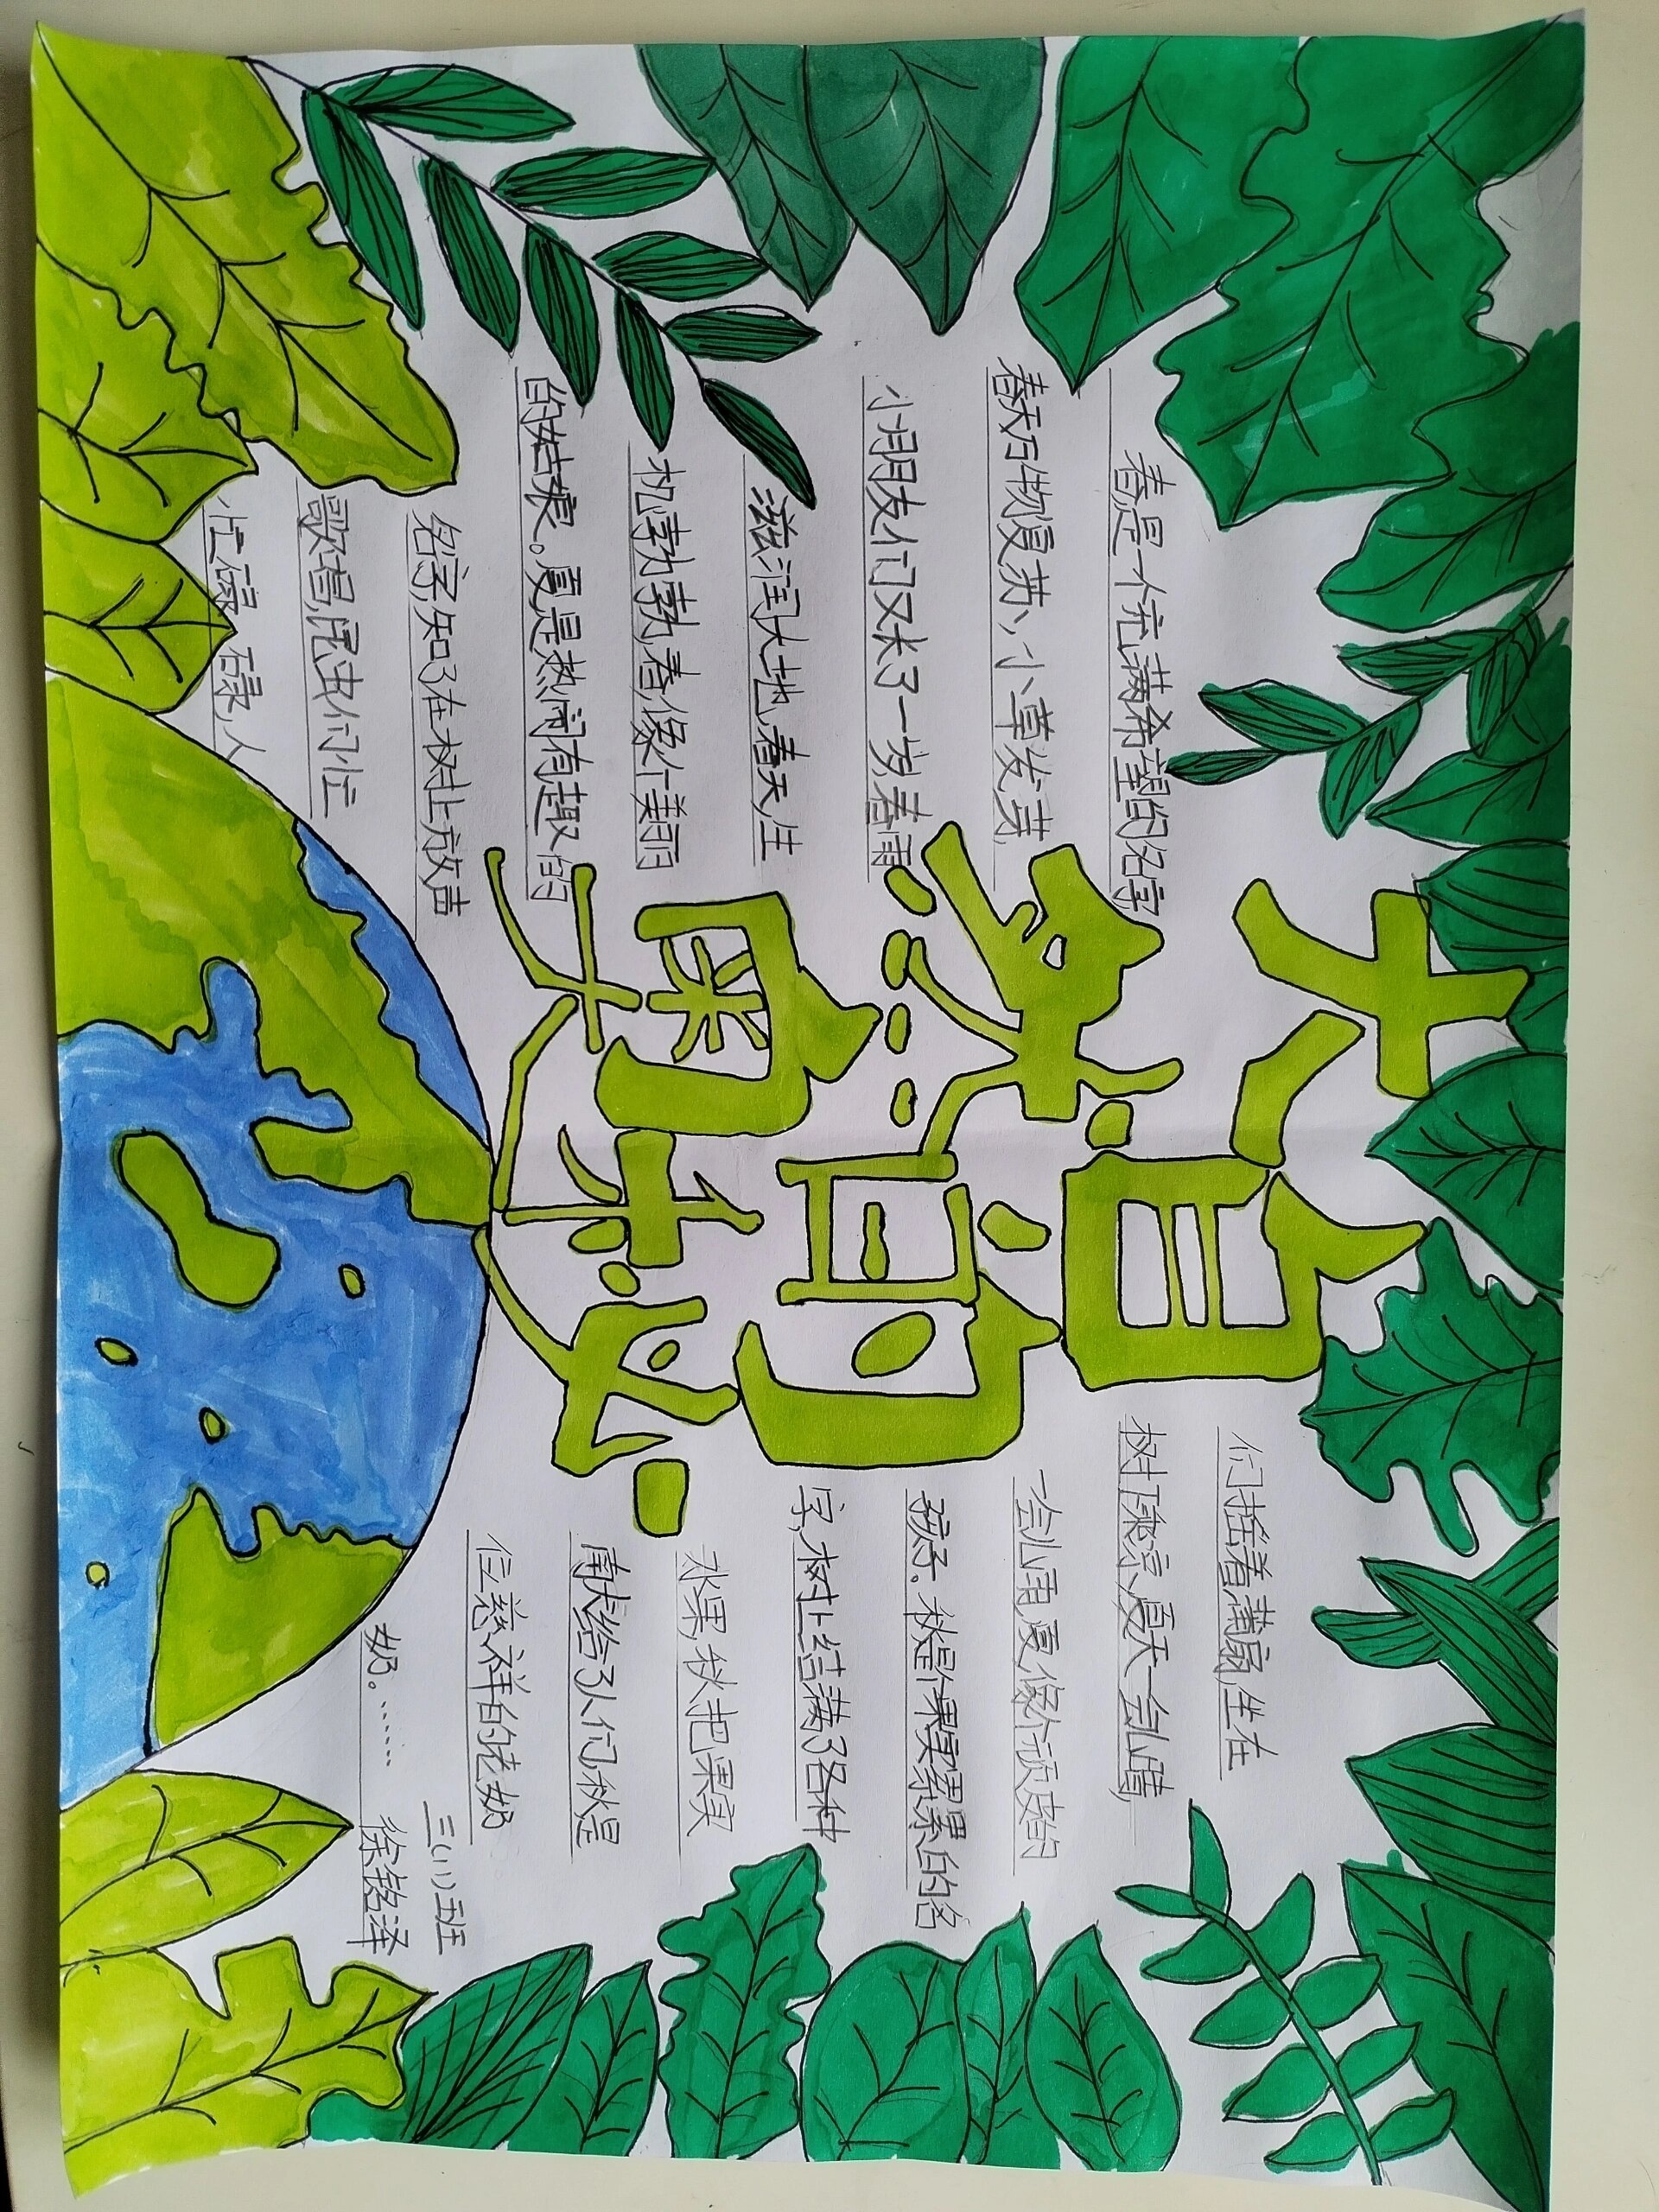 大自然的奥秘
春是一个充满希望的名字
春天万物复苏,小草发芽,
小朋友们又长了一岁,春雨
滋润大地,春天,生
机勃勃,春,像个美丽
的姑娘。夏,是热闹有趣的
名字,知了在树上放声
歌唱,昆虫们忙
忙碌碌,人
们摇着蒲扇,坐在
树下乘凉,夏天一会儿晴
一会儿雨,夏像个顽皮的
孩子。秋是个果实累累的名
字,树上结满了各种
水果,秋把果实
献给了人们,秋是
位慈祥的老奶
奶。……
三(1)班
徐铭泽